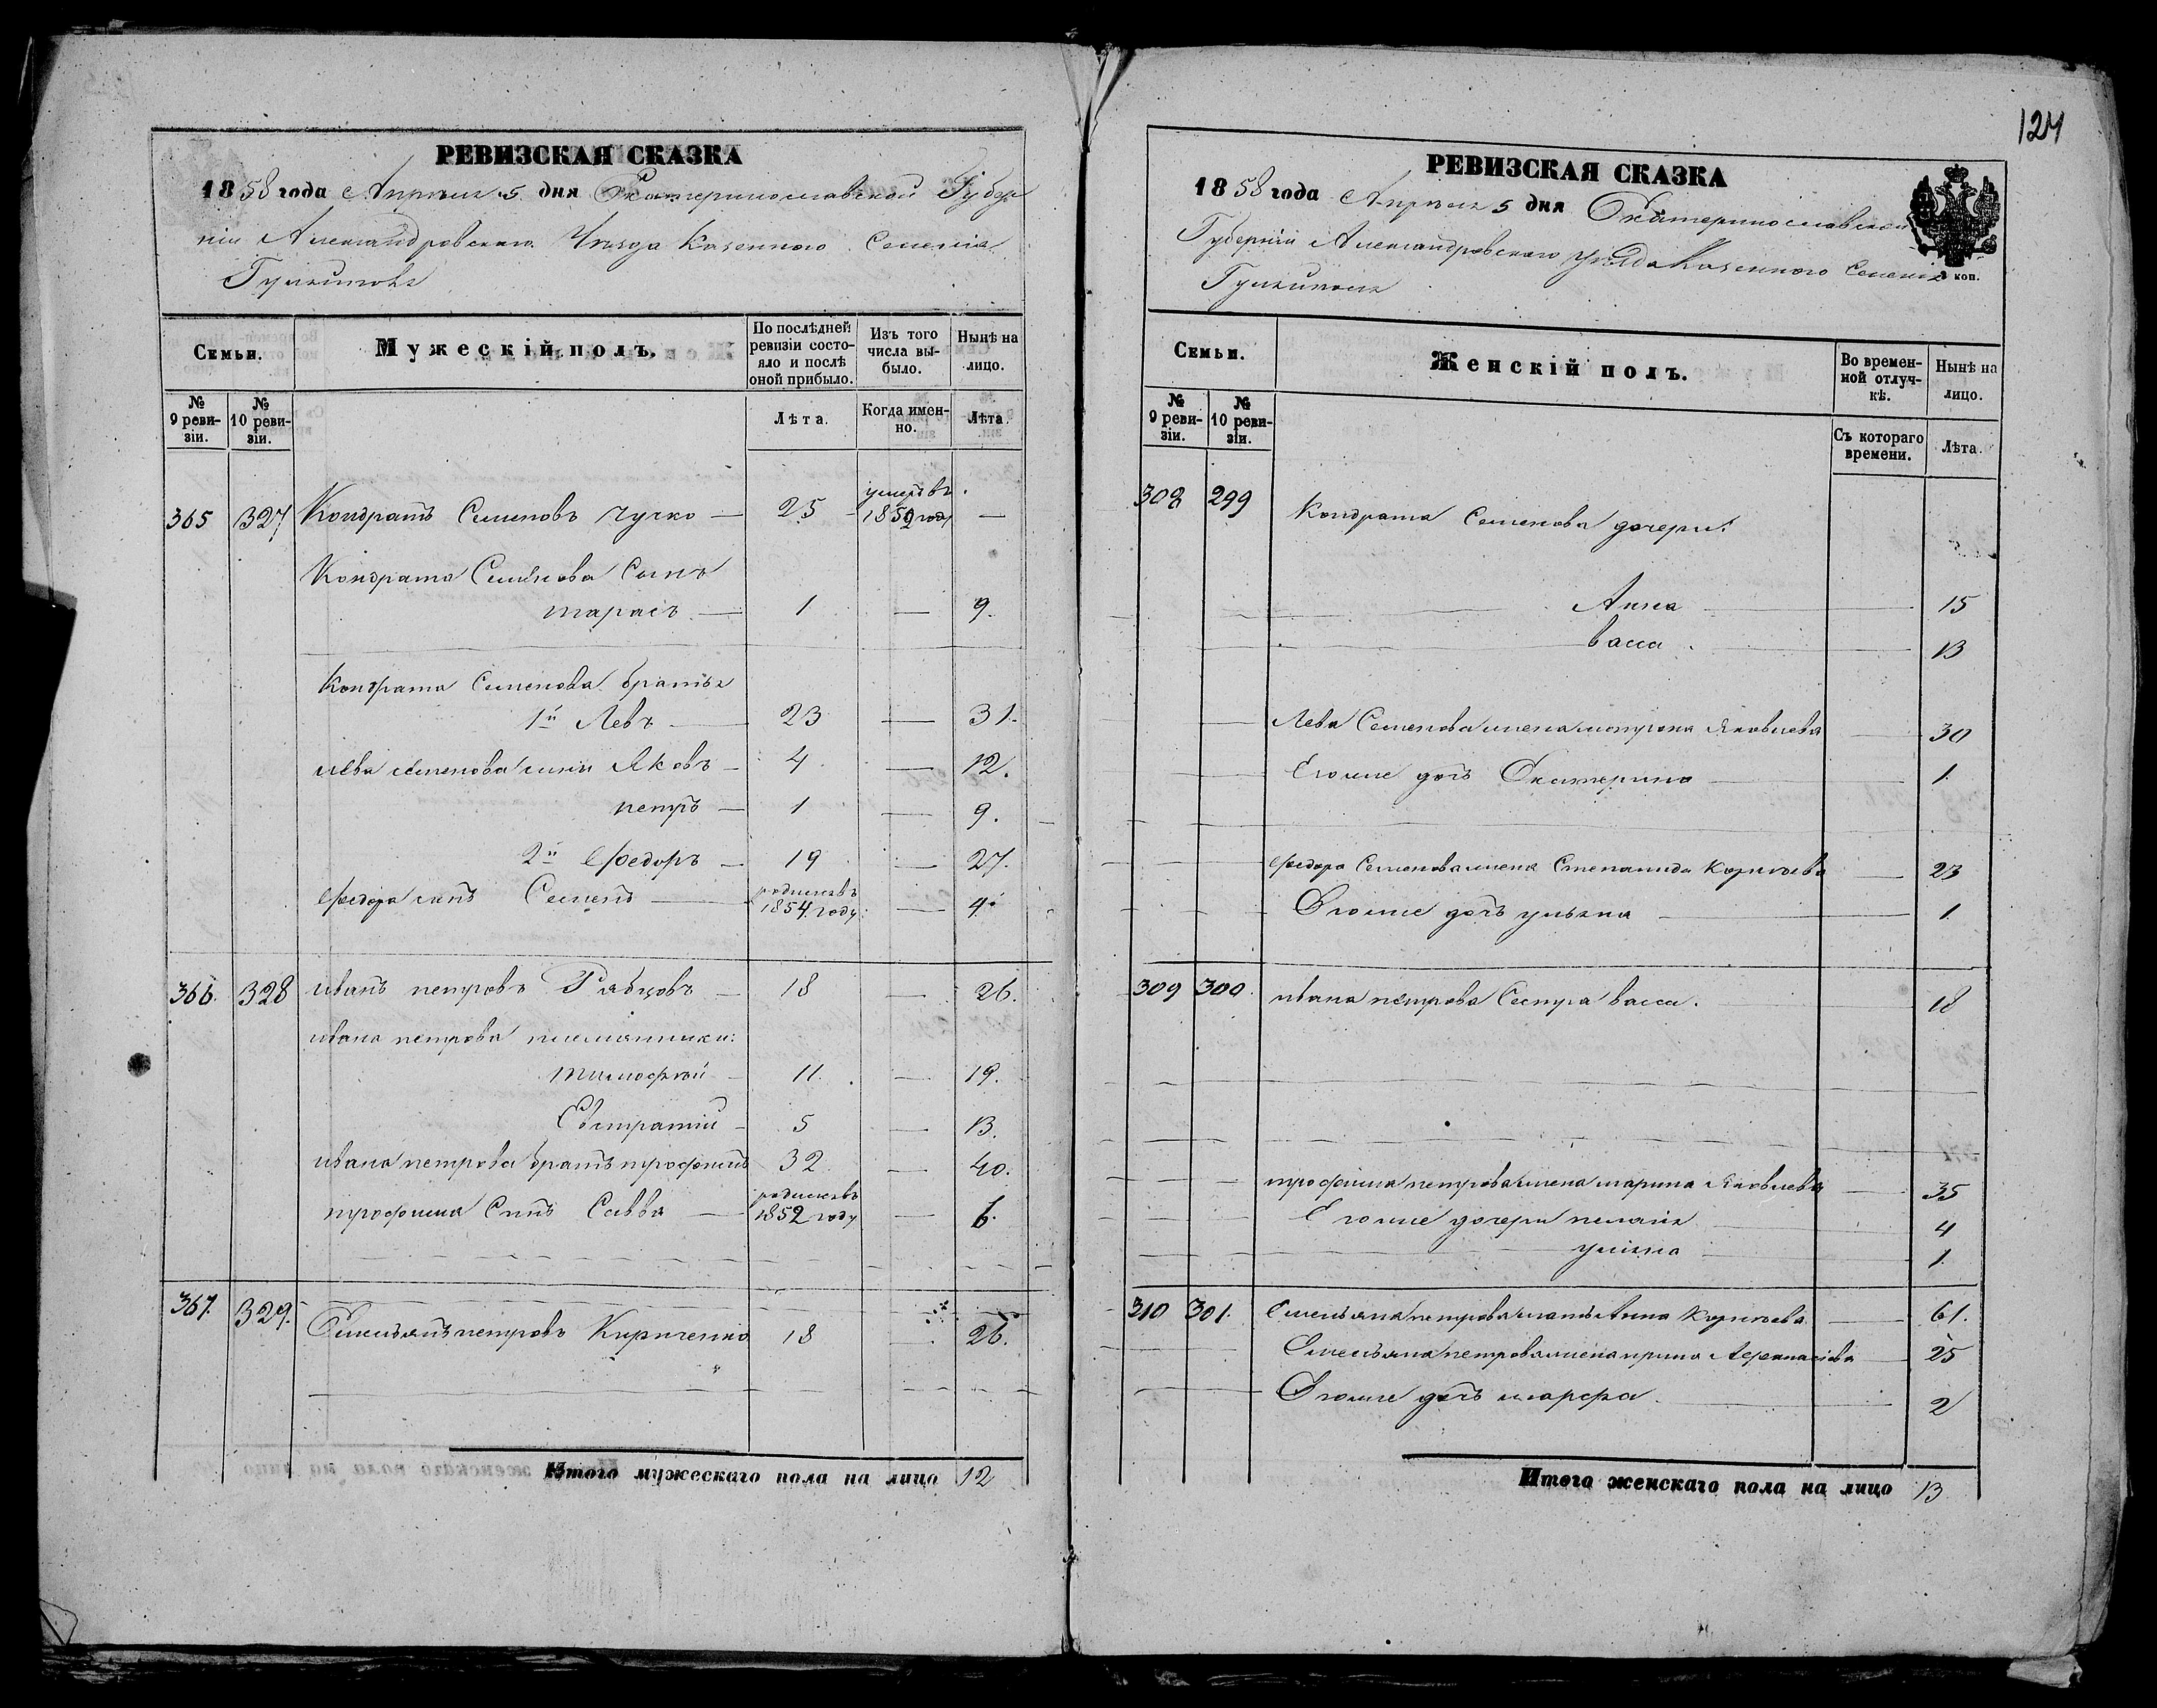 РЕВИЗСКАЯ СКАЗКА
1858 года Апреля 5 дня Екатеринославской Губер
ніи Александровскаго Уезда Казеннаго Селенія
Гуляйполя
Семьи.
Мужескій полъ.
По послѣдней ревизіи состояло и послѣ оной прибыло.
Изъ того числа выбыло.
Нынѣ на лицо.
№ 9 ревизіи.
№ 10 ревизіи.
Лѣта.
Когда именно.
Лѣта.
365 327 Кондратъ Семеновъ Чучко — 25 умеръ въ 1852 году —
Кондрата Семенова Сынъ
тарасъ — 1 — 9.
Кондрата Семенова братья
1й Левъ — 23 — 31.
Лева семенова сыны Яковъ — 4 — 12.
петръ — 1 — 9.
2й Федоръ — 19 — 27.
Федора сынъ Семенъ — родился въ 1854 году — 4.
366. 328 иванъ петровъ Рябцовъ — 18 — 26.
ивана петрова племянники:
тимофей — 11. — 19.
Евстратий — 5 — 13.
ивана петрова братъ трофимъ 32 — 40.
трофима Сынъ Савва — родился въ 1852 году — 6.
367. 329. Емельянъ петровъ Кириченко 18 — 26.
Итого мужескаго пола на лицо 12
124
РЕВИЗСКАЯ СКАЗКА
1858 года Апреля 5 дня Екатеринославской
Губерніи Александровскаго уезда Казеннаго Селенія
Гуляйполя
коп.
Семьи.
Женскій полъ.
Во временной отлучкѣ.
Нынѣ на лицо.
№ 9 ревизіи.
№ 10 ревизіи.
Съ котораго времени.
Лѣта.
308 299 Кондрата Семенова дочери:
Анна — 15
васса — 13
Лева Семенова жена мотрона Яковлева — 30
Егоже дочь Екатерина — 1.
федора Семенова жена Степанида Корнеева — 23
Егоже дочь ульяна — 1
309 300. ивана петрова Сестра васса. 18
трофима петрова жена марина Яковлева — 35
Егоже дочери пелагія 4
улияна — 1.
310 301. Емельяна петрова мать Анна Корнеева — 61.
Емельяна петрова жена ирина Афанасіева — 25
Егоже дочь марфа. — 2
Итого женскаго пола на лицо 13